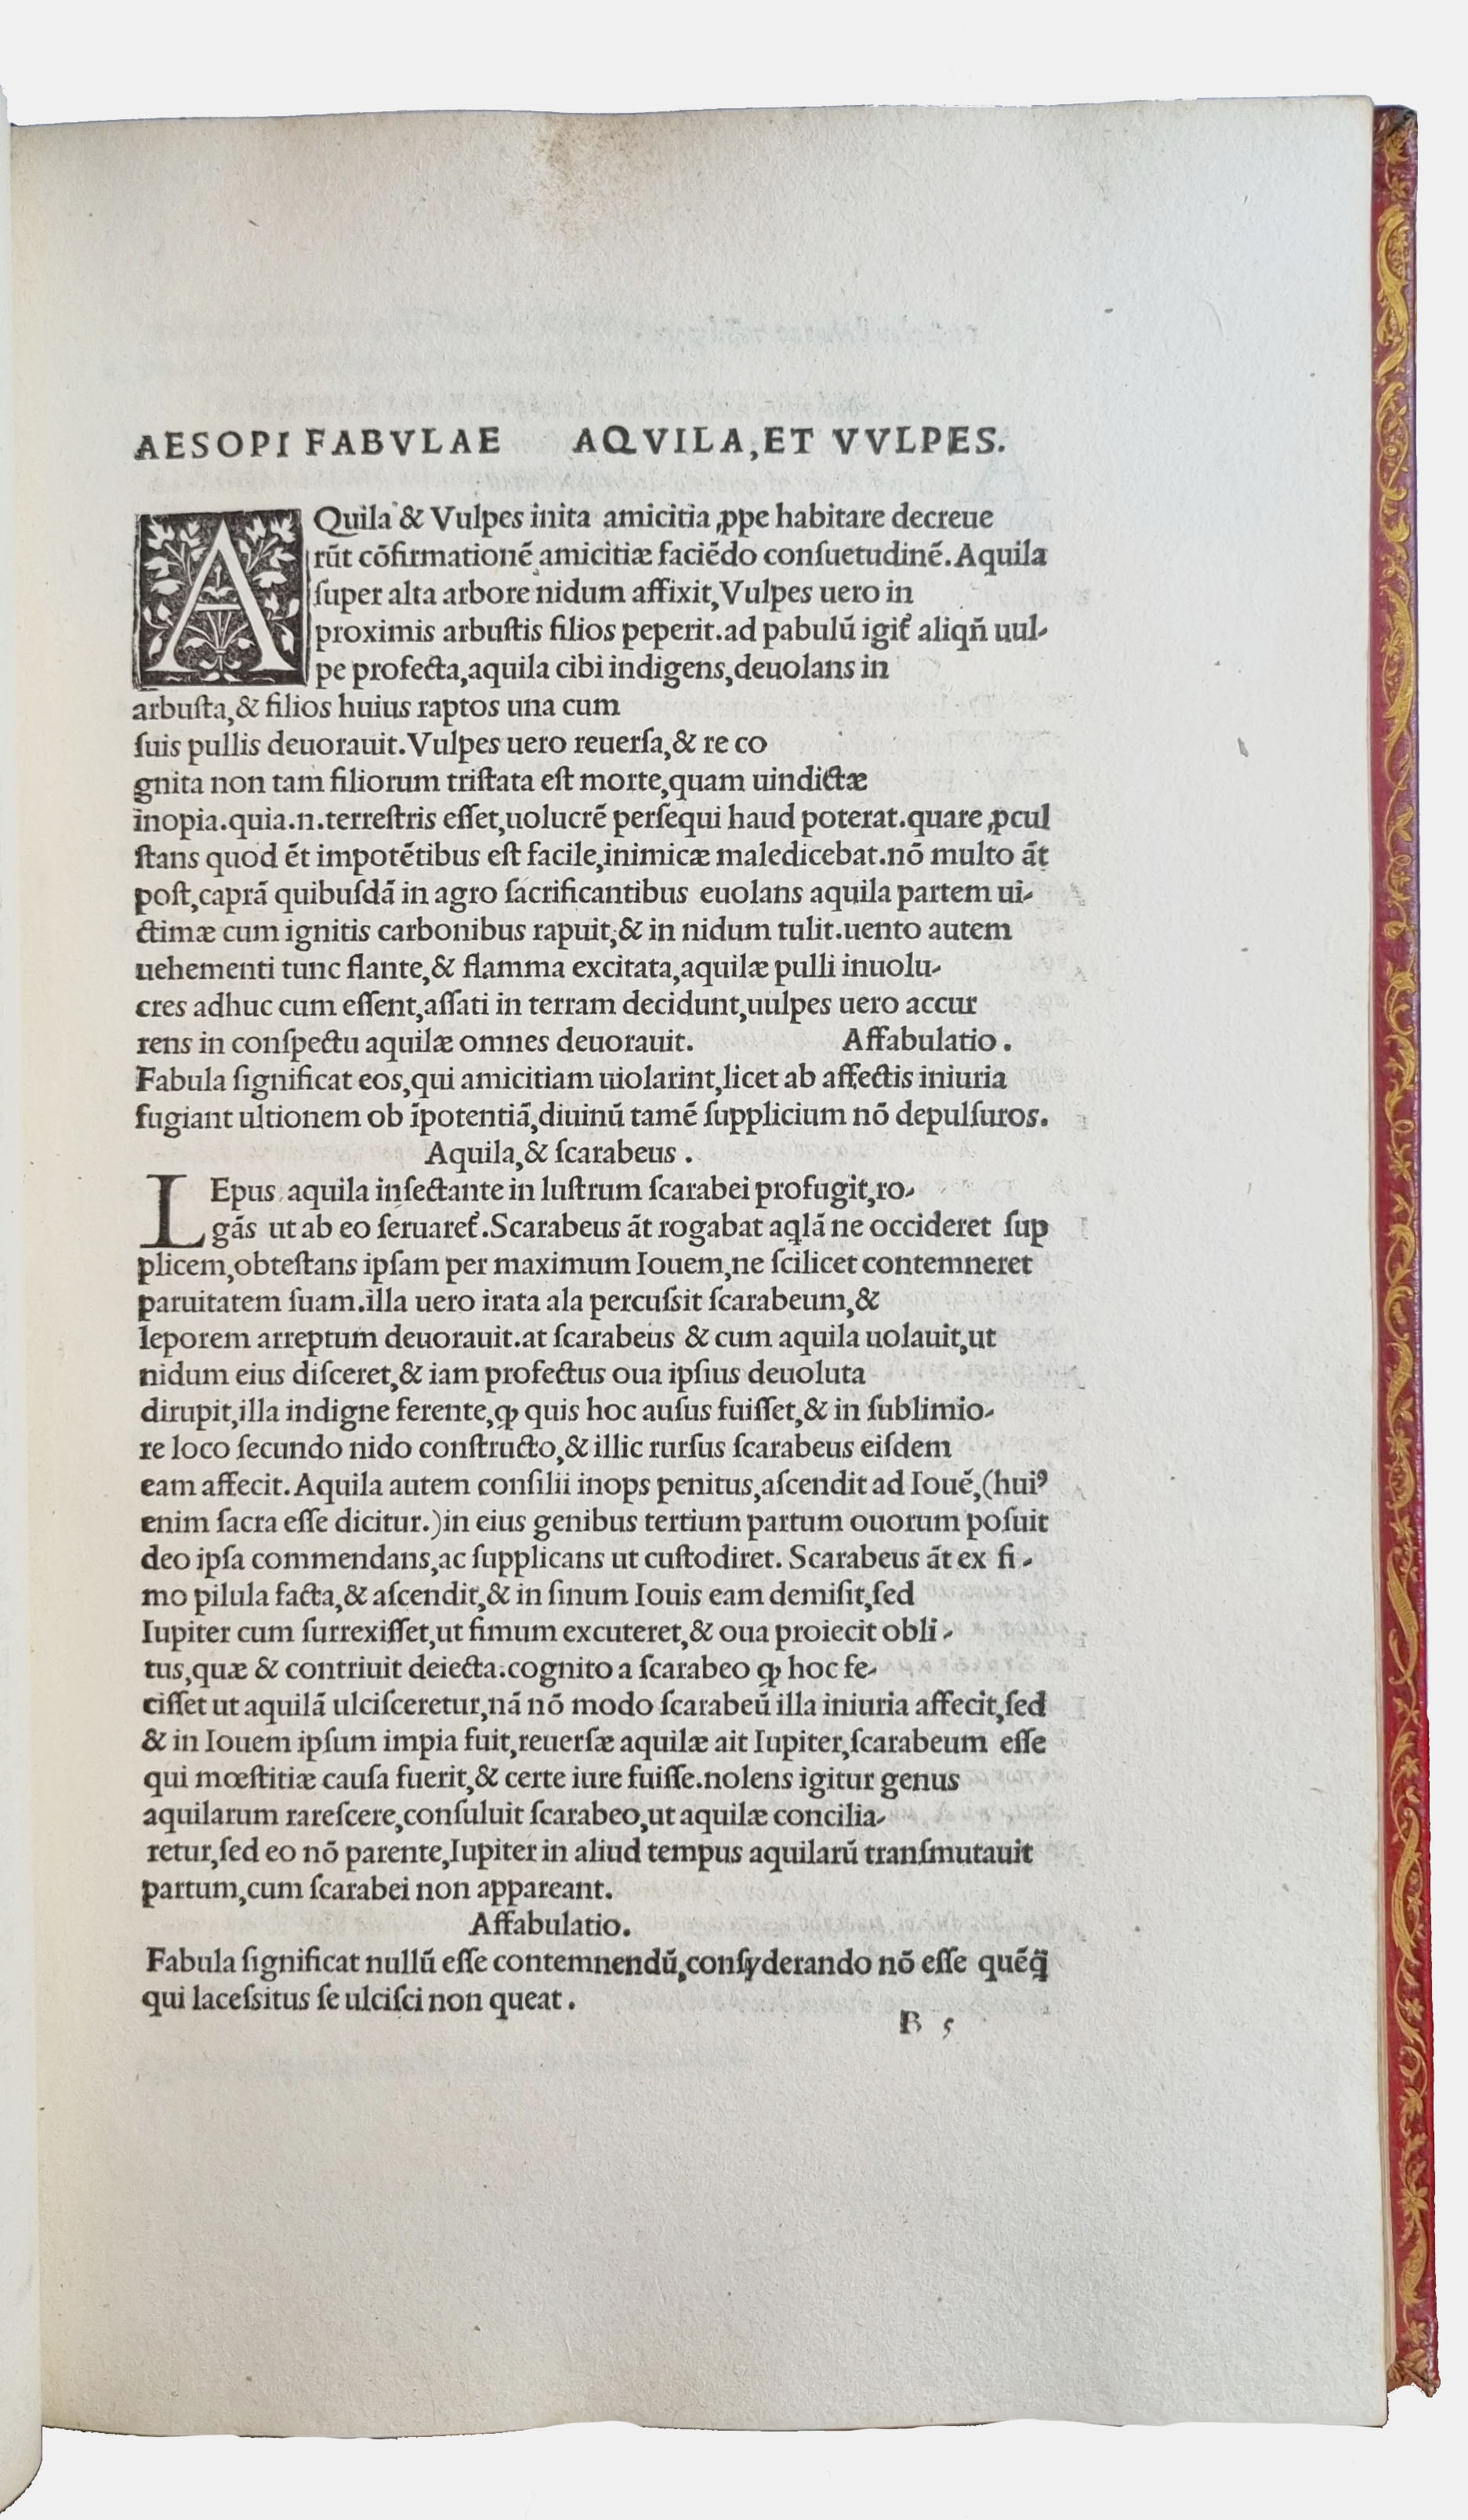 AESOPI FABVLAE AQVILA, ET VVLPES.
AQuila & Vulpes inita amicitia ꝓpe habitare decreue
rūt cōfirmationē amicitiæ faciēdo conſuetudinē. Aquila
ſuper alta arbore nidum affixit, Vulpes uero in
proximis arbuſtis filios peperit. ad pabulū igit᷑ aliqn̄ uul-
pe profecta, aquila cibi indigens, deuolans in
arbuſta, & filios huius raptos una cum
ſuis pullis deuorauit. Vulpes uero reuerſa, & re co
gnita non tam filiorum triſtata eſt morte, quam uindictæ
inopia. quia .n. terreſtris eſſet, uolucrē perſequi haud poterat. quare ꝓcul
ſtans quod ēt impotētibus eſt facile, inimicæ maledicebat. nō multo āt
poſt, caprā quibuſdā in agro ſacrificantibus euolans aquila partem ui-
ctimæ cum ignitis carbonibus rapuit, & in nidum tulit. uento autem
uehementi tunc flante, & flamma excitata, aquilæ pulli inuolu-
cres adhuc cum eſſent, aſſati in terram decidunt, uulpes uero accur
rens in conſpectu aquilæ omnes deuorauit. Affabulatio.
Fabula ſignificat eos, qui amicitiam uiolarint, licet ab affectis iniuria
fugiant ultionem ob īpotentiā, diuinū tamē ſupplicium nō depulſuros.
Aquila, & ſcarabeus.
LEpus aquila inſectante in luſtrum ſcarabei profugit, ro-
gās ut ab eo ſeruaret᷑. Scarabeus āt rogabat aq̇lā ne occideret ſup
plicem, obteſtans ipſam per maximum Iouem, ne ſcilicet contemneret
paruitatem ſuam. illa uero irata ala percuſsit ſcarabeum, &
leporem arreptum deuorauit. at ſcarabeus & cum aquila uolauit, ut
nidum eius diſceret, & iam profectus oua ipſius deuoluta
dirupit, illa indigne ferente, ꝙ quis hoc auſus fuiſſet, & in ſublimio-
re loco ſecundo nido conſtructo, & illic rurſus ſcarabeus eiſdem
eam affecit. Aquila autem conſilii inops penitus, aſcendit ad Iouē, (huiꝰ
enim ſacra eſſe dicitur.) in eius genibus tertium partum ouorum poſuit
deo ipſa commendans, ac ſupplicans ut cuſtodiret. Scarabeus āt ex fi-
mo pilula facta, & aſcendit, & in ſinum Iouis eam demiſit, ſed
Iupiter cum ſurrexiſſet, ut fimum excuteret, & oua proiecit obli-
tus, quæ & contriuit deiecta. cognito a ſcarabeo ꝙ hoc fe-
ciſſet ut aquilā ulciſceretur, nā nō modo ſcarabeū illa iniuria affecit, ſed
& in Iouem ipſum impia fuit, reuerſæ aquilæ ait Iupiter, ſcarabeum eſſe
qui mœſtitiæ cauſa fuerit, & certe iure fuiſſe. nolens igitur genus
aquilarum rareſcere, conſuluit ſcarabeo, ut aquilæ concilia-
retur, ſed eo nō parente, Iupiter in aliud tempus aquilarū tranſmutauit
partum, cum ſcarabei non appareant.
Affabulatio.
Fabula ſignificat nullū eſſe contemnendū, conſyderando nō eſſe quēq̃
qui laceſsitus ſe ulciſci non queat.
B 5